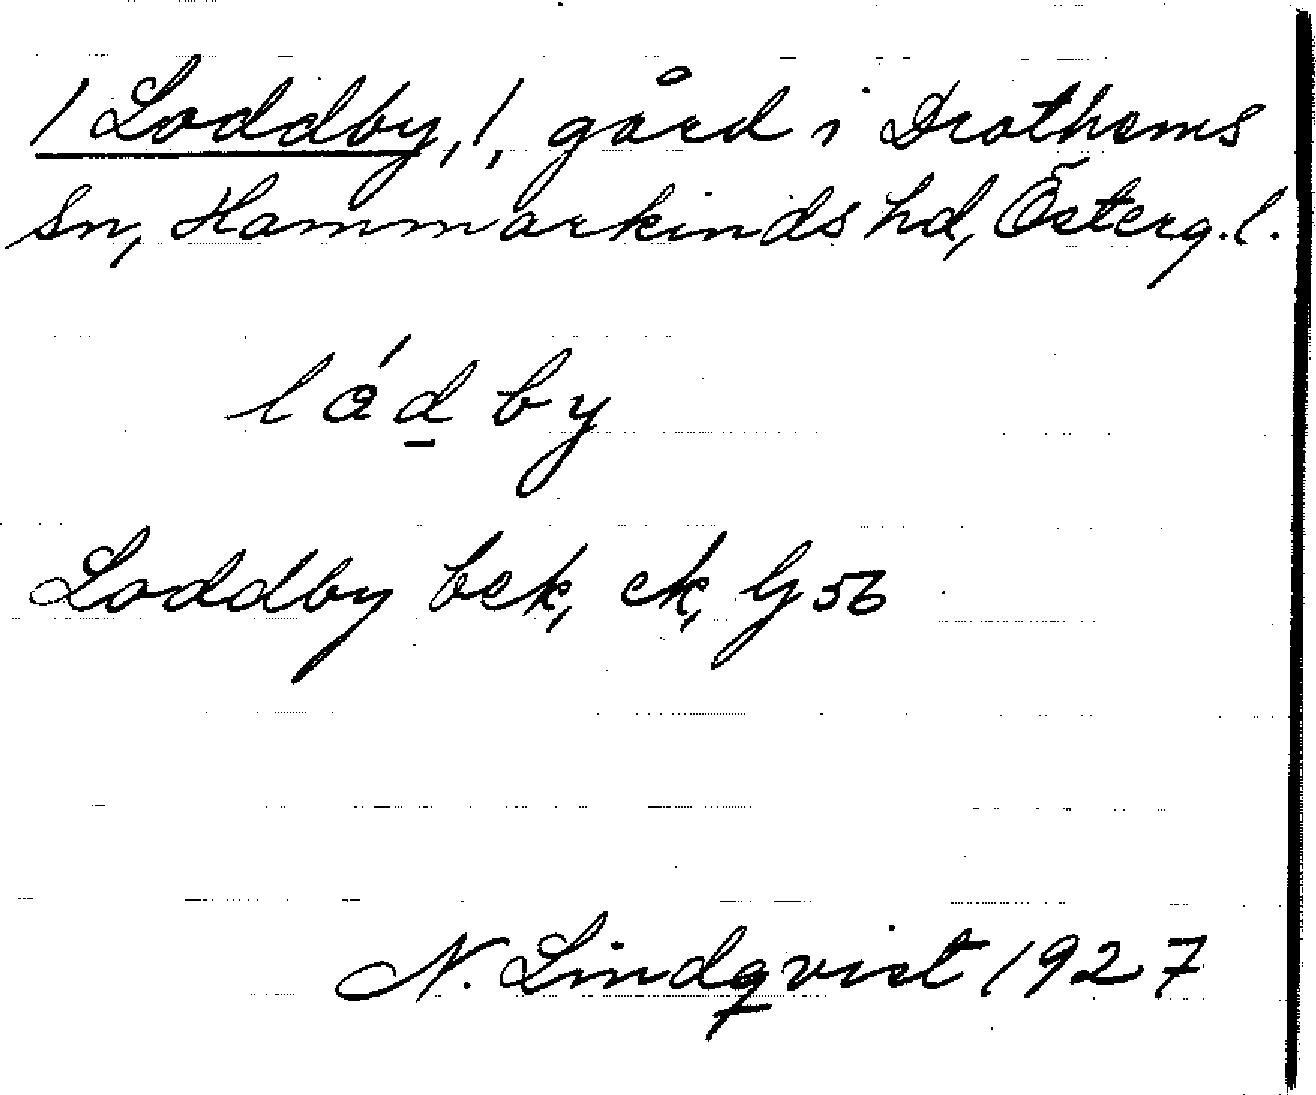 / Loddby, /, gård i Drothems
sn, Hammarkinds hd, Österg. l.
lód̲by
Loddby bek, ek, G 56
N. Lindqvist 1927